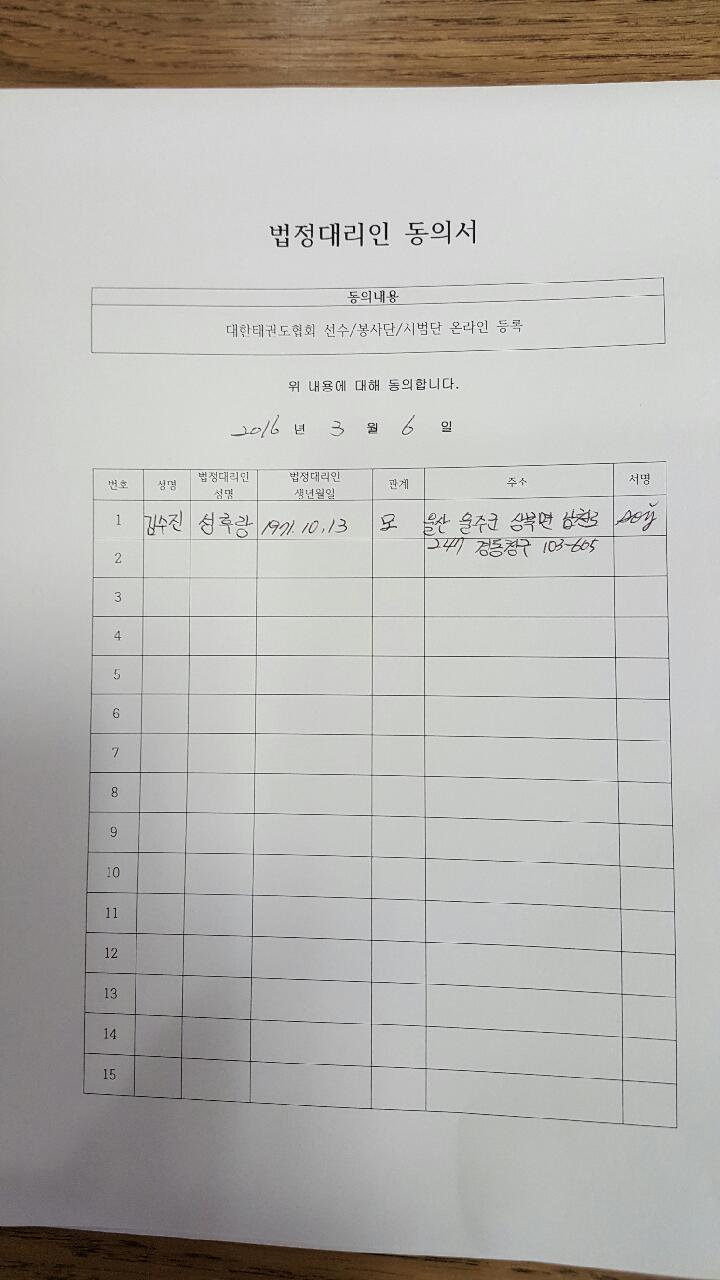 법정대리인 동의서
동의내용
대한태권도협회 선수/봉사단/시범단 온라인 등록
위 내용에 대해 동의합니다.
2016 년 3 월 6 일
번호 성명 법정대리인 성명 법정대리인 생년월일 관계 주소 서명
1 김수진 1971.10.13 모 울산 울주군 상북면
247 경동청구 103-605
2
3
4
5
6
7
8
9
10
11
12
13
14
15